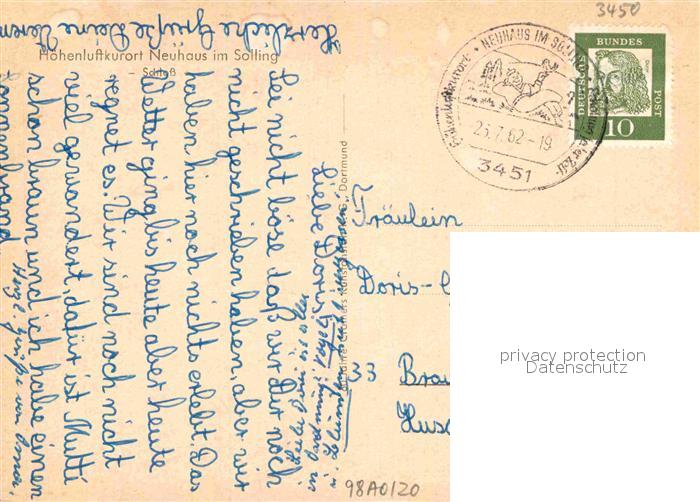 3450
Höhenluftkurort Neuhaus im Solling
- Schloß -
Höhenluftkurort · NEUHAUS IM SOLLING
23.7.62-19
3451
DEUTSCHE
BUNDES
POST
10
Liebe Doris!
Sei nicht böse daß wir Dir noch
nicht geschrieben haben, aber wir
haben hier noch nichts erlebt. Das
Wetter ging bis heute aber heute
regnet es. Wir sind noch nicht
viel gewandert, dafür ist Mutti
schon braun und ich habe einen
Sonnenbrand
Herzliche Grüße Deine
Herzl. Grüße von
Fräulein
Doris-
33 Brau
Dortmund
privacy protection
Datenschutz
98A0120